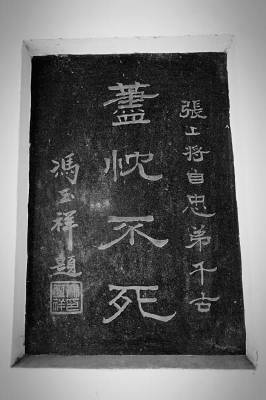 張上将自忠弟千古
藎忱不死
馮玉祥題